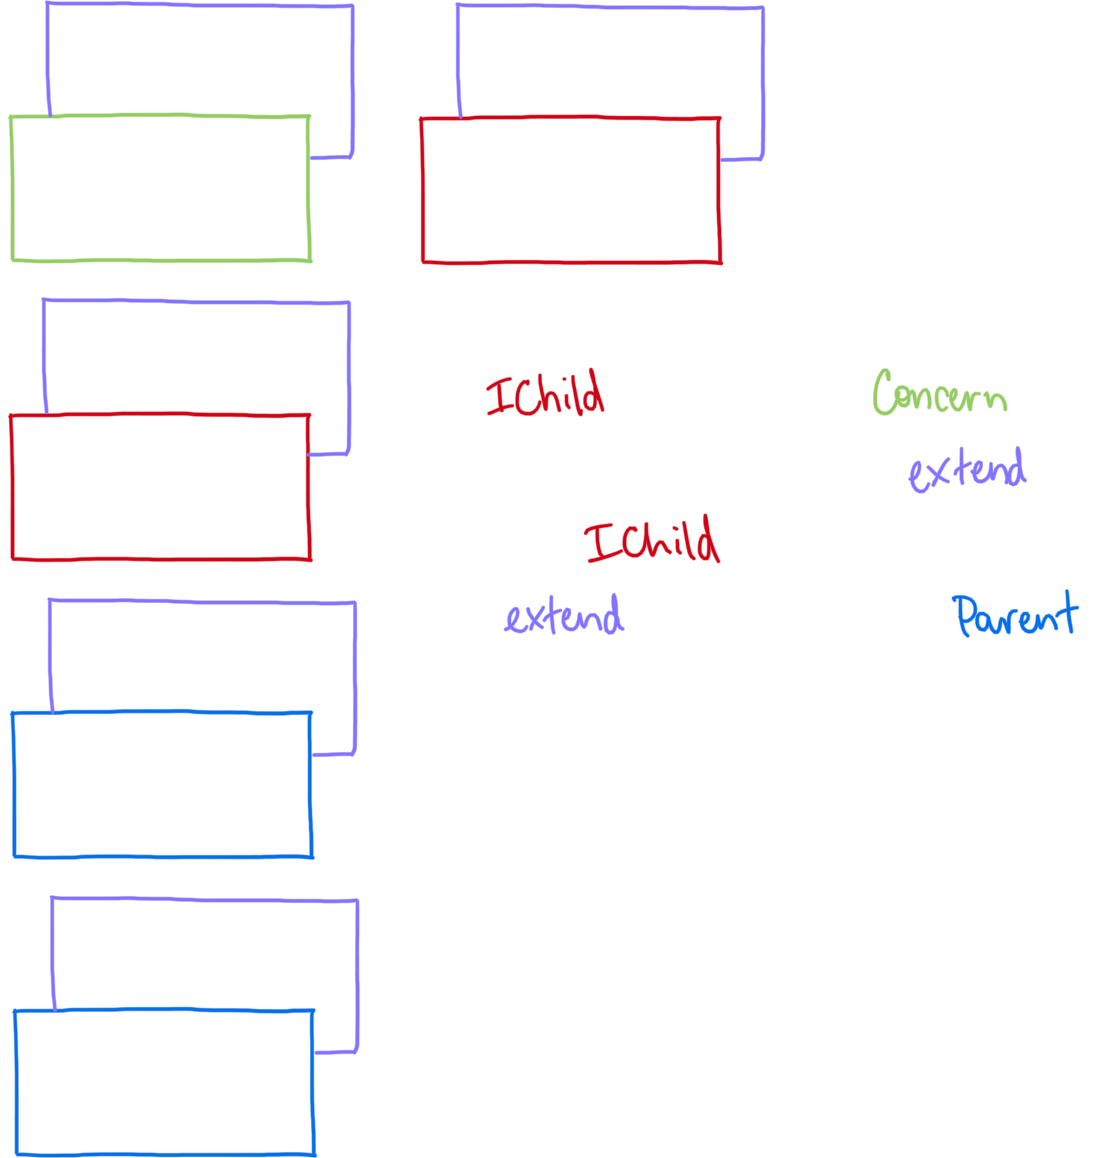 IChild
Concern
extend
IChild
extend
Parent